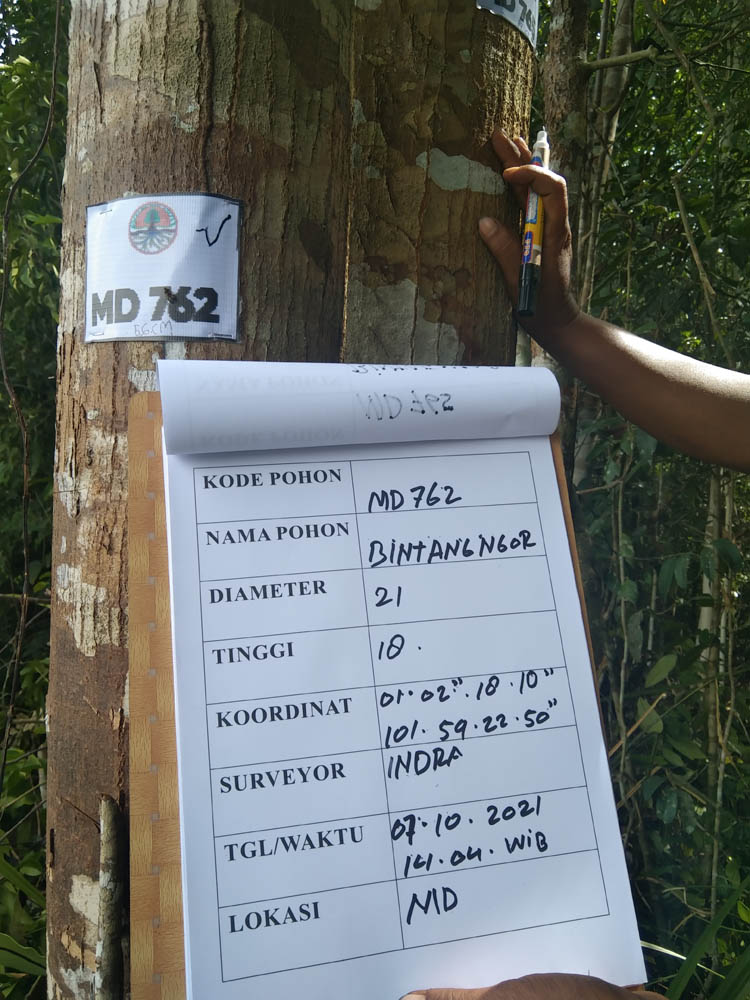 MD 762
MD 762
BGCM
MD 762
KODE POHON MD 762
NAMA POHON BINTANGINGOR
DIAMETER 21
TINGGI 18.
KOORDINAT 01.02".18.10"
101.59.22.50"
SURVEYOR INDRA
TGL/WAKTU 07.10.2021
14.04. WIB
LOKASI MD